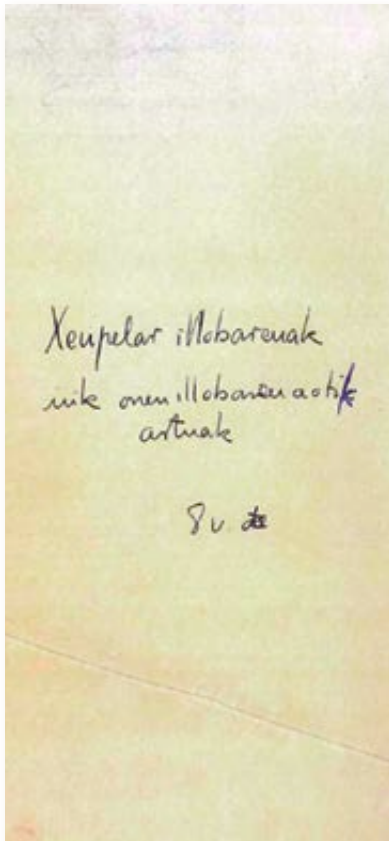 Xenpelar illobarenak
nik onen illobaren aotik
artuak
8 v.